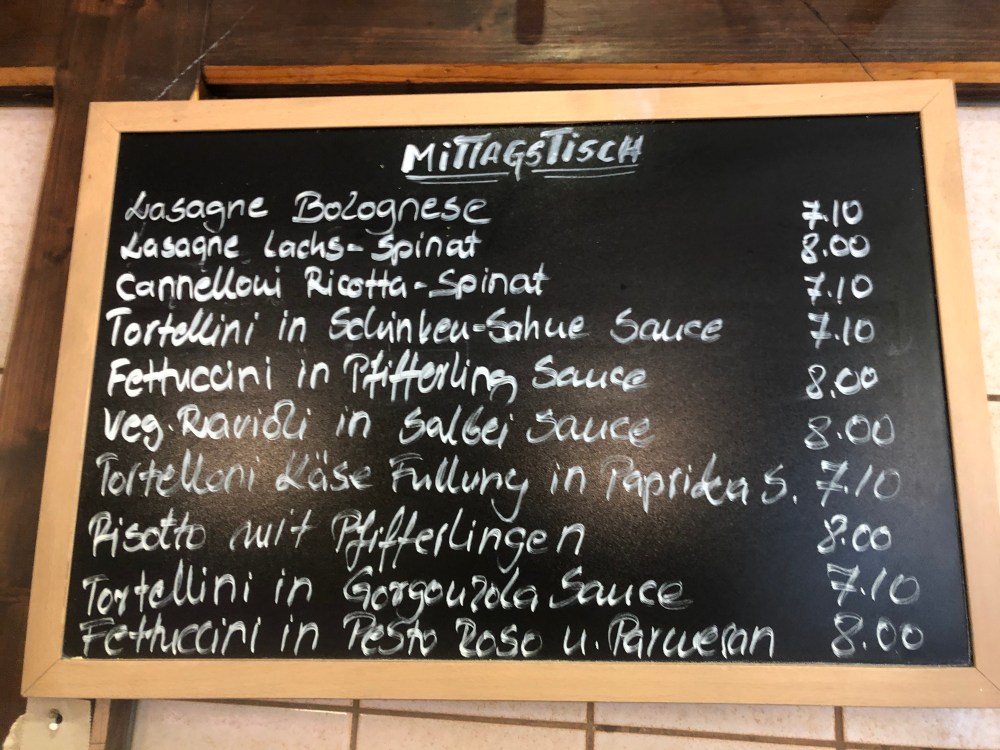 MiTTAGSTiSCH
Lasagne Bolognese 7.10
Lasagne Lachs-Spinat 8.00
Cannelloni Ricotta-Spinat 7.10
Tortellini in Schinken-Sahne Sauce 7.10
Fettuccini in Pfifferling Sauce 8.00
Veg. Ravioli in Salbei Sauce 8.00
Tortelloni Käse Fullung in Paprika S. 7.10
Risotto mit Pfifferlingen 8.00
Tortellini in Gorgonzola Sauce 7.10
Fettuccini in Pesto Roso u. Parmesan 8.00